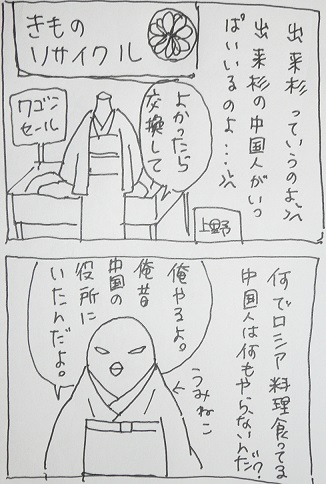 出来杉っていうのよ、
出来杉の中国人がいっ
ぱいいるのよ…
きもの
リサイクル
よかったら
交換して
ワゴン
セール
上野
何でロシア料理食ってる
中国人は何もやらないんだ?
俺やるよ。
俺昔
中国の
役所に
いたんだよ。
うみねこ